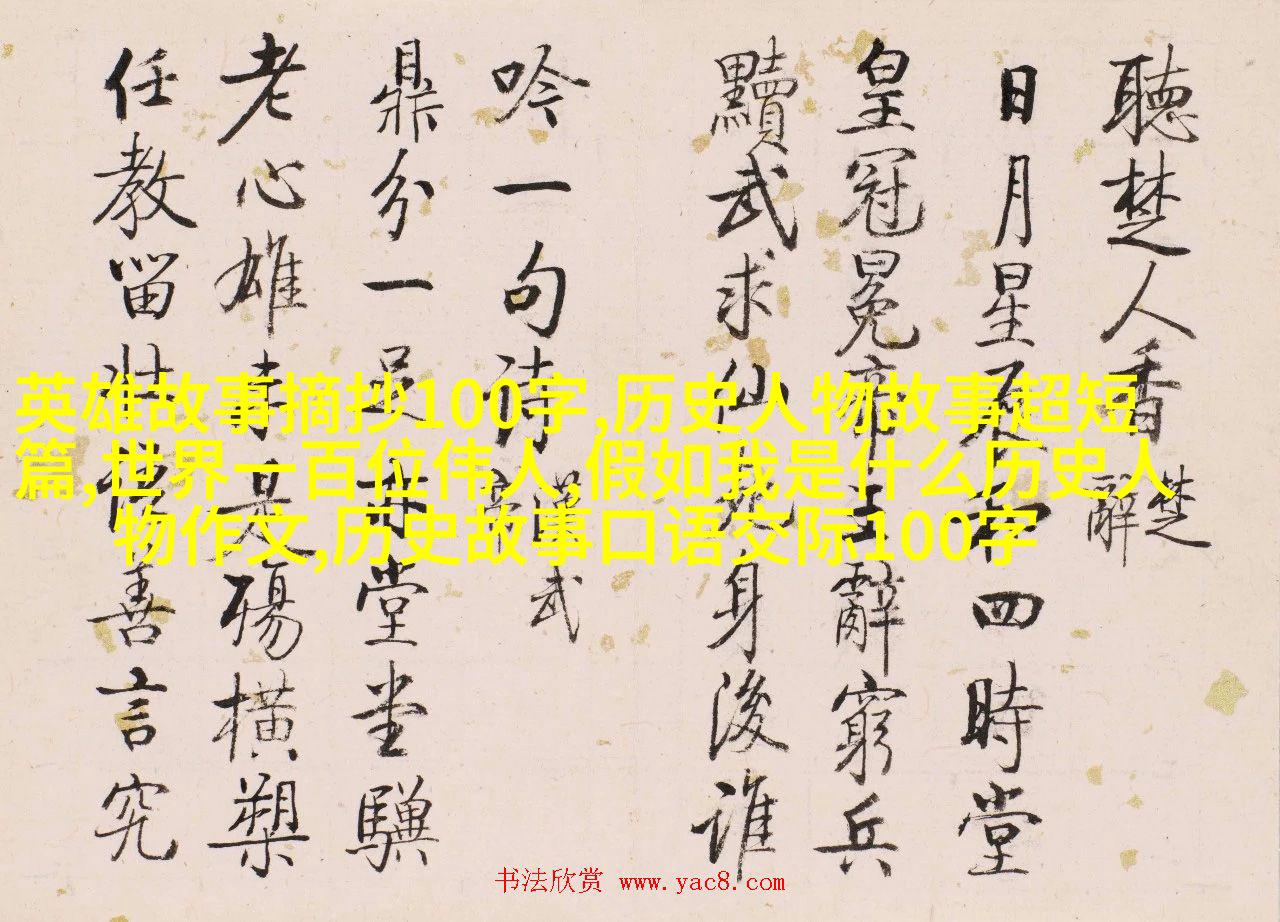 聽楚人香 楚辭
日月星四時堂
皇冠冕帝王辭窮兵
黷武求仙死身後誰
吟一句詩 漢武
鼎分一足亦堂堂驥
老心雄未是殤橫槊
任教留壯善言究
英雄故事摘抄100字,历史人物故事超短
篇,世界一百位伟人,假如我是什么历史人
物作文,历史故事口语交际100字
书法欣赏 www.yac8.com